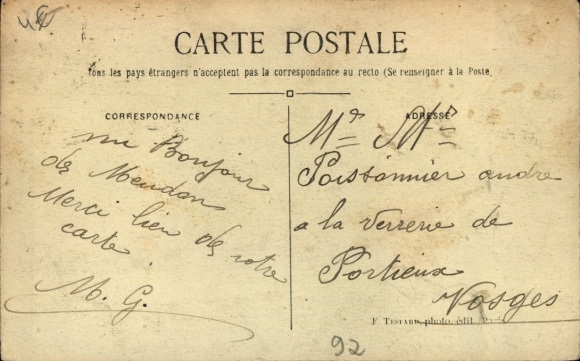 CARTE POSTALE
Tous les pays étrangers n'acceptent pas la correspondance au recto (Se renseigner à la Poste)
CORRESPONDANCE
un Bonjour
de Meudon
Merci bien de votre
carte
M. G.
ADRESSE
Poissonnier andre
a la verrerie de
Portieux
Vosges
F. Testard, photo. édit. Paris
92